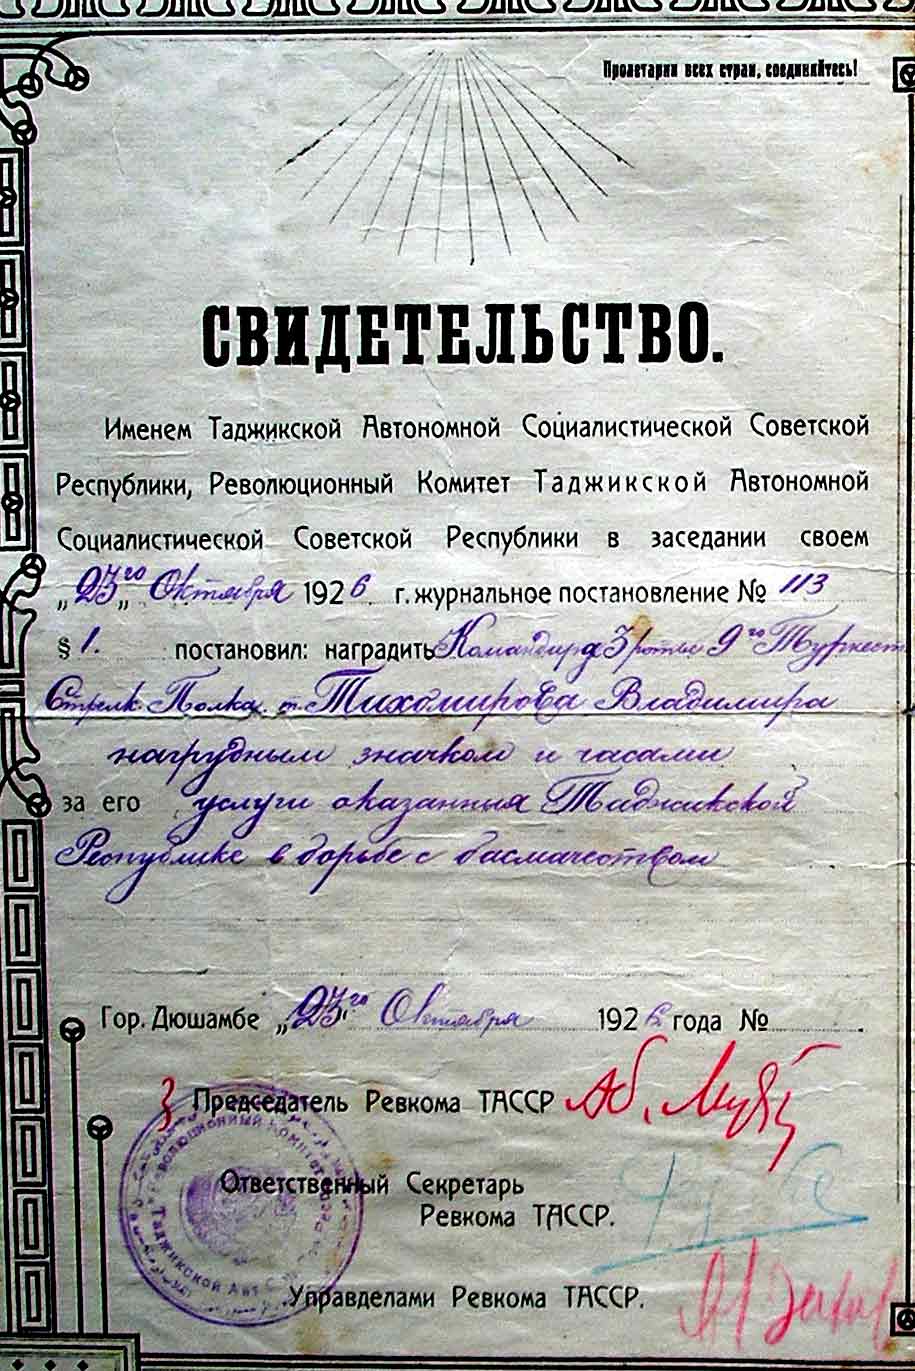 Пролетарии всех стран, соединяйтесь!
СВИДЕТЕЛЬСТВО.
Именем Таджикской Автономной Социалистической Советской
Республики, Революционный Комитет Таджикской Автономной
Социалистической Советской Республики в заседании своем
„23го„ Октября 1926 г. журнальное постановление № 113
§ 1. постановил: наградить Командира 3 роты 9го Туркест.
Стрелк. Полка т. Тихомирова Владимира
нагрудным значком и часами
за его услуги оказанныя Таджикской
Республике в борьбе с басмачеством
Гор. Дюшамбе „23„го Октября 1926 года №
З Председатель Ревкома ТАССР
Ответственный Секретарь
Ревкома ТАССР.
Управделами Ревкома ТАССР.
Революционный Комитет
Таджикской Авт. С.